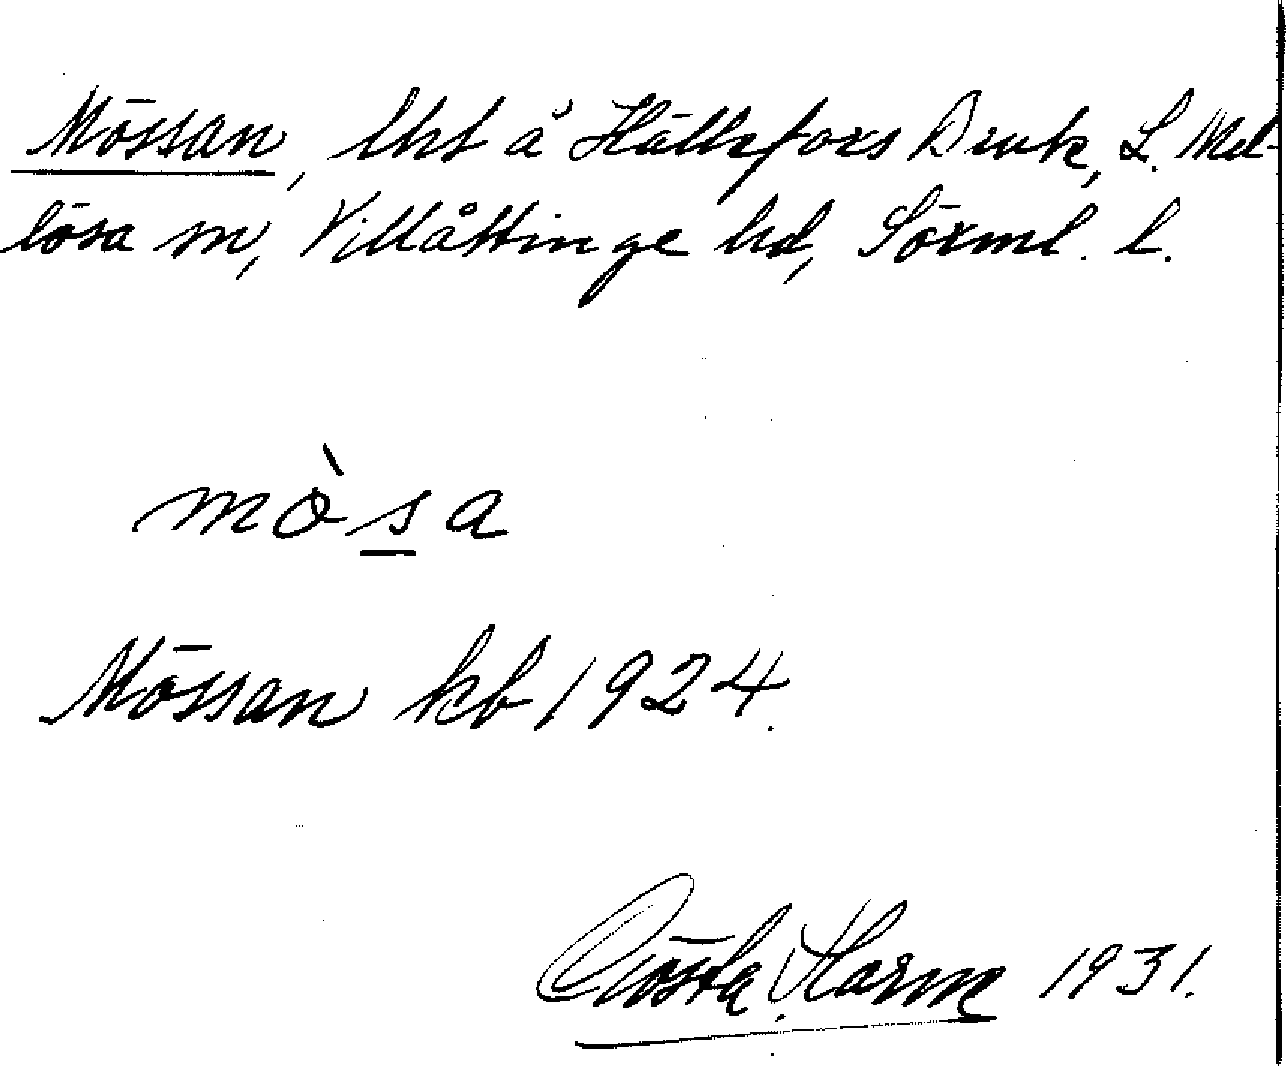 Mössan, lht å Hällefors Bruk, L. Mel-
lösa sn, Villåttinge hd, Sörml. l.
mòsa
Mössan kb 1924.
Gösta Harm 1931.